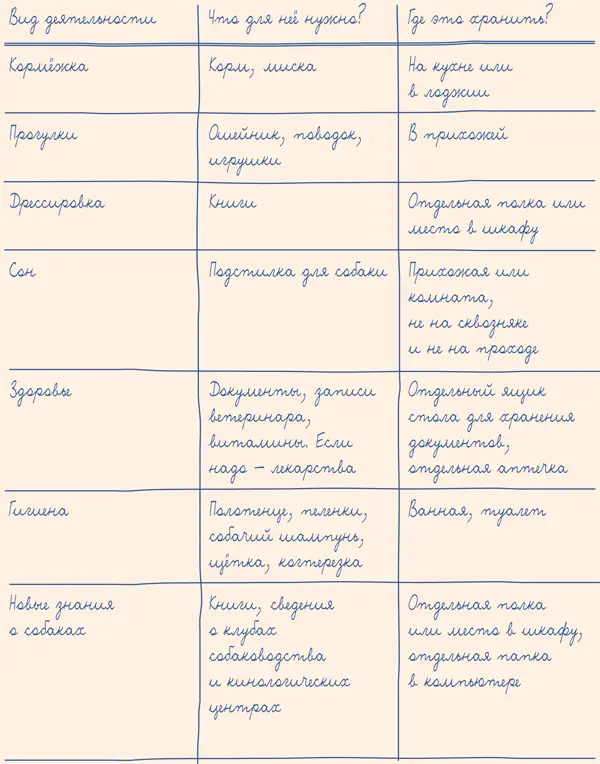 Вид деятельности
Что для неё нужно?
Где это хранить?
Кормёжка
Корм, миска
На кухне или
в лоджии
Прогулки
Ошейник, поводок,
игрушки
В прихожей
Дрессировка
Книги
Отдельная полка или
место в шкафу
Сон
Подстилка для собаки
Прихожая или
комната,
не на сквозняке
и не на проходе
Здоровье
Документы, записи
ветеринара,
витамины. Если
надо – лекарства
Отдельный ящик
стола для хранения
документов,
отдельная аптечка
Гигиена
Полотенце, пеленки,
собачий шампунь,
щётка, когтерезка
Ванная, туалет
Новые знания
о собаках
Книги, сведения
о клубах
собаководства
и кинологических
центрах
Отдельная полка
или место в шкафу,
отдельная папка
в компьютере